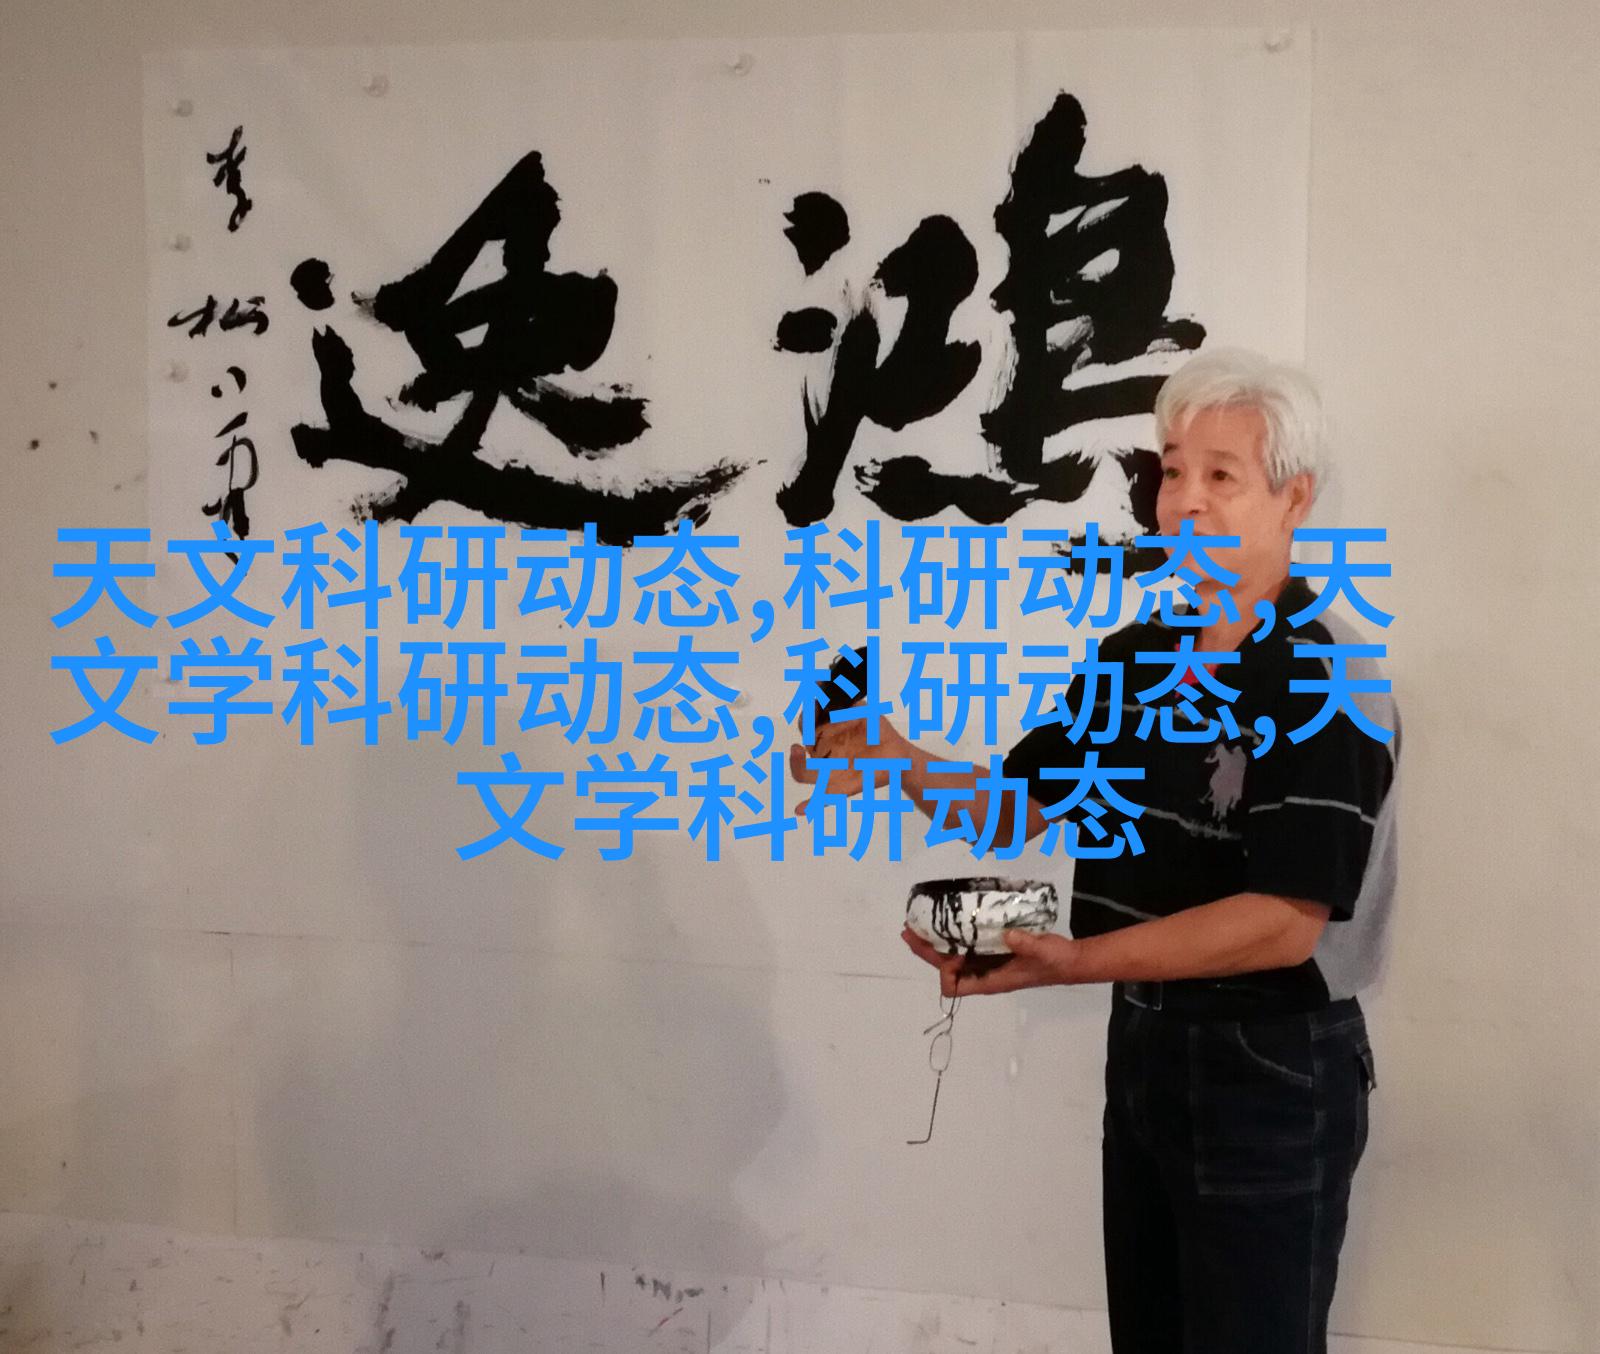 鸿逸
李松
天文科研动态,科研动态,天
文学科研动态,科研动态,天
文学科研动态